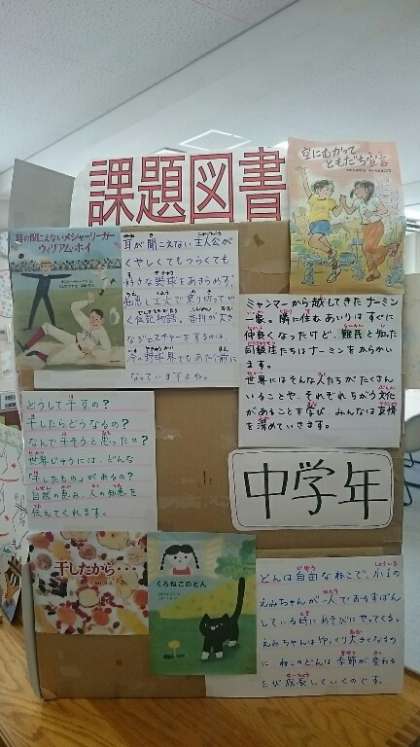 課題図書
空にむかって
ともだち宣言
耳の聞こえないメジャーリーガー
ウィリアム・ホイ
耳が聞こえない主人公が
くやしくてもつらくても
好きな野球をあきらめず、
く伝記物語。審判が大き
なジェスチャーをするのは
今の野球界でもあたり前に
なっていますよね。
ミャンマーから越してきたナーミン
一家。隣に住むあいりはすぐに
仲良くなったけど、難民と知った
同級生たちはナーミンをからかい
ます。
世界にはそんな人たちがたくさん
いることや、それぞれちがう文化
があることを学び みんなは友情
を深めていきます。
どうして干すの?
干したらどうなるの?
なんで干そうと思ったの?
世界じゅうには、どんな
「干したもの」があるの?
自然の恵み、人の知恵を
伝えてくれます。
中学年
干したから・・・
くろねこのどん
どんは自由なねこで、小1の
えみちゃんが一人でおるすばん
している時にあそびにやってくる。
えみちゃんはゆっくり大きくなるの
に ねこのどんは季節が変わる
たび成長していくのです。